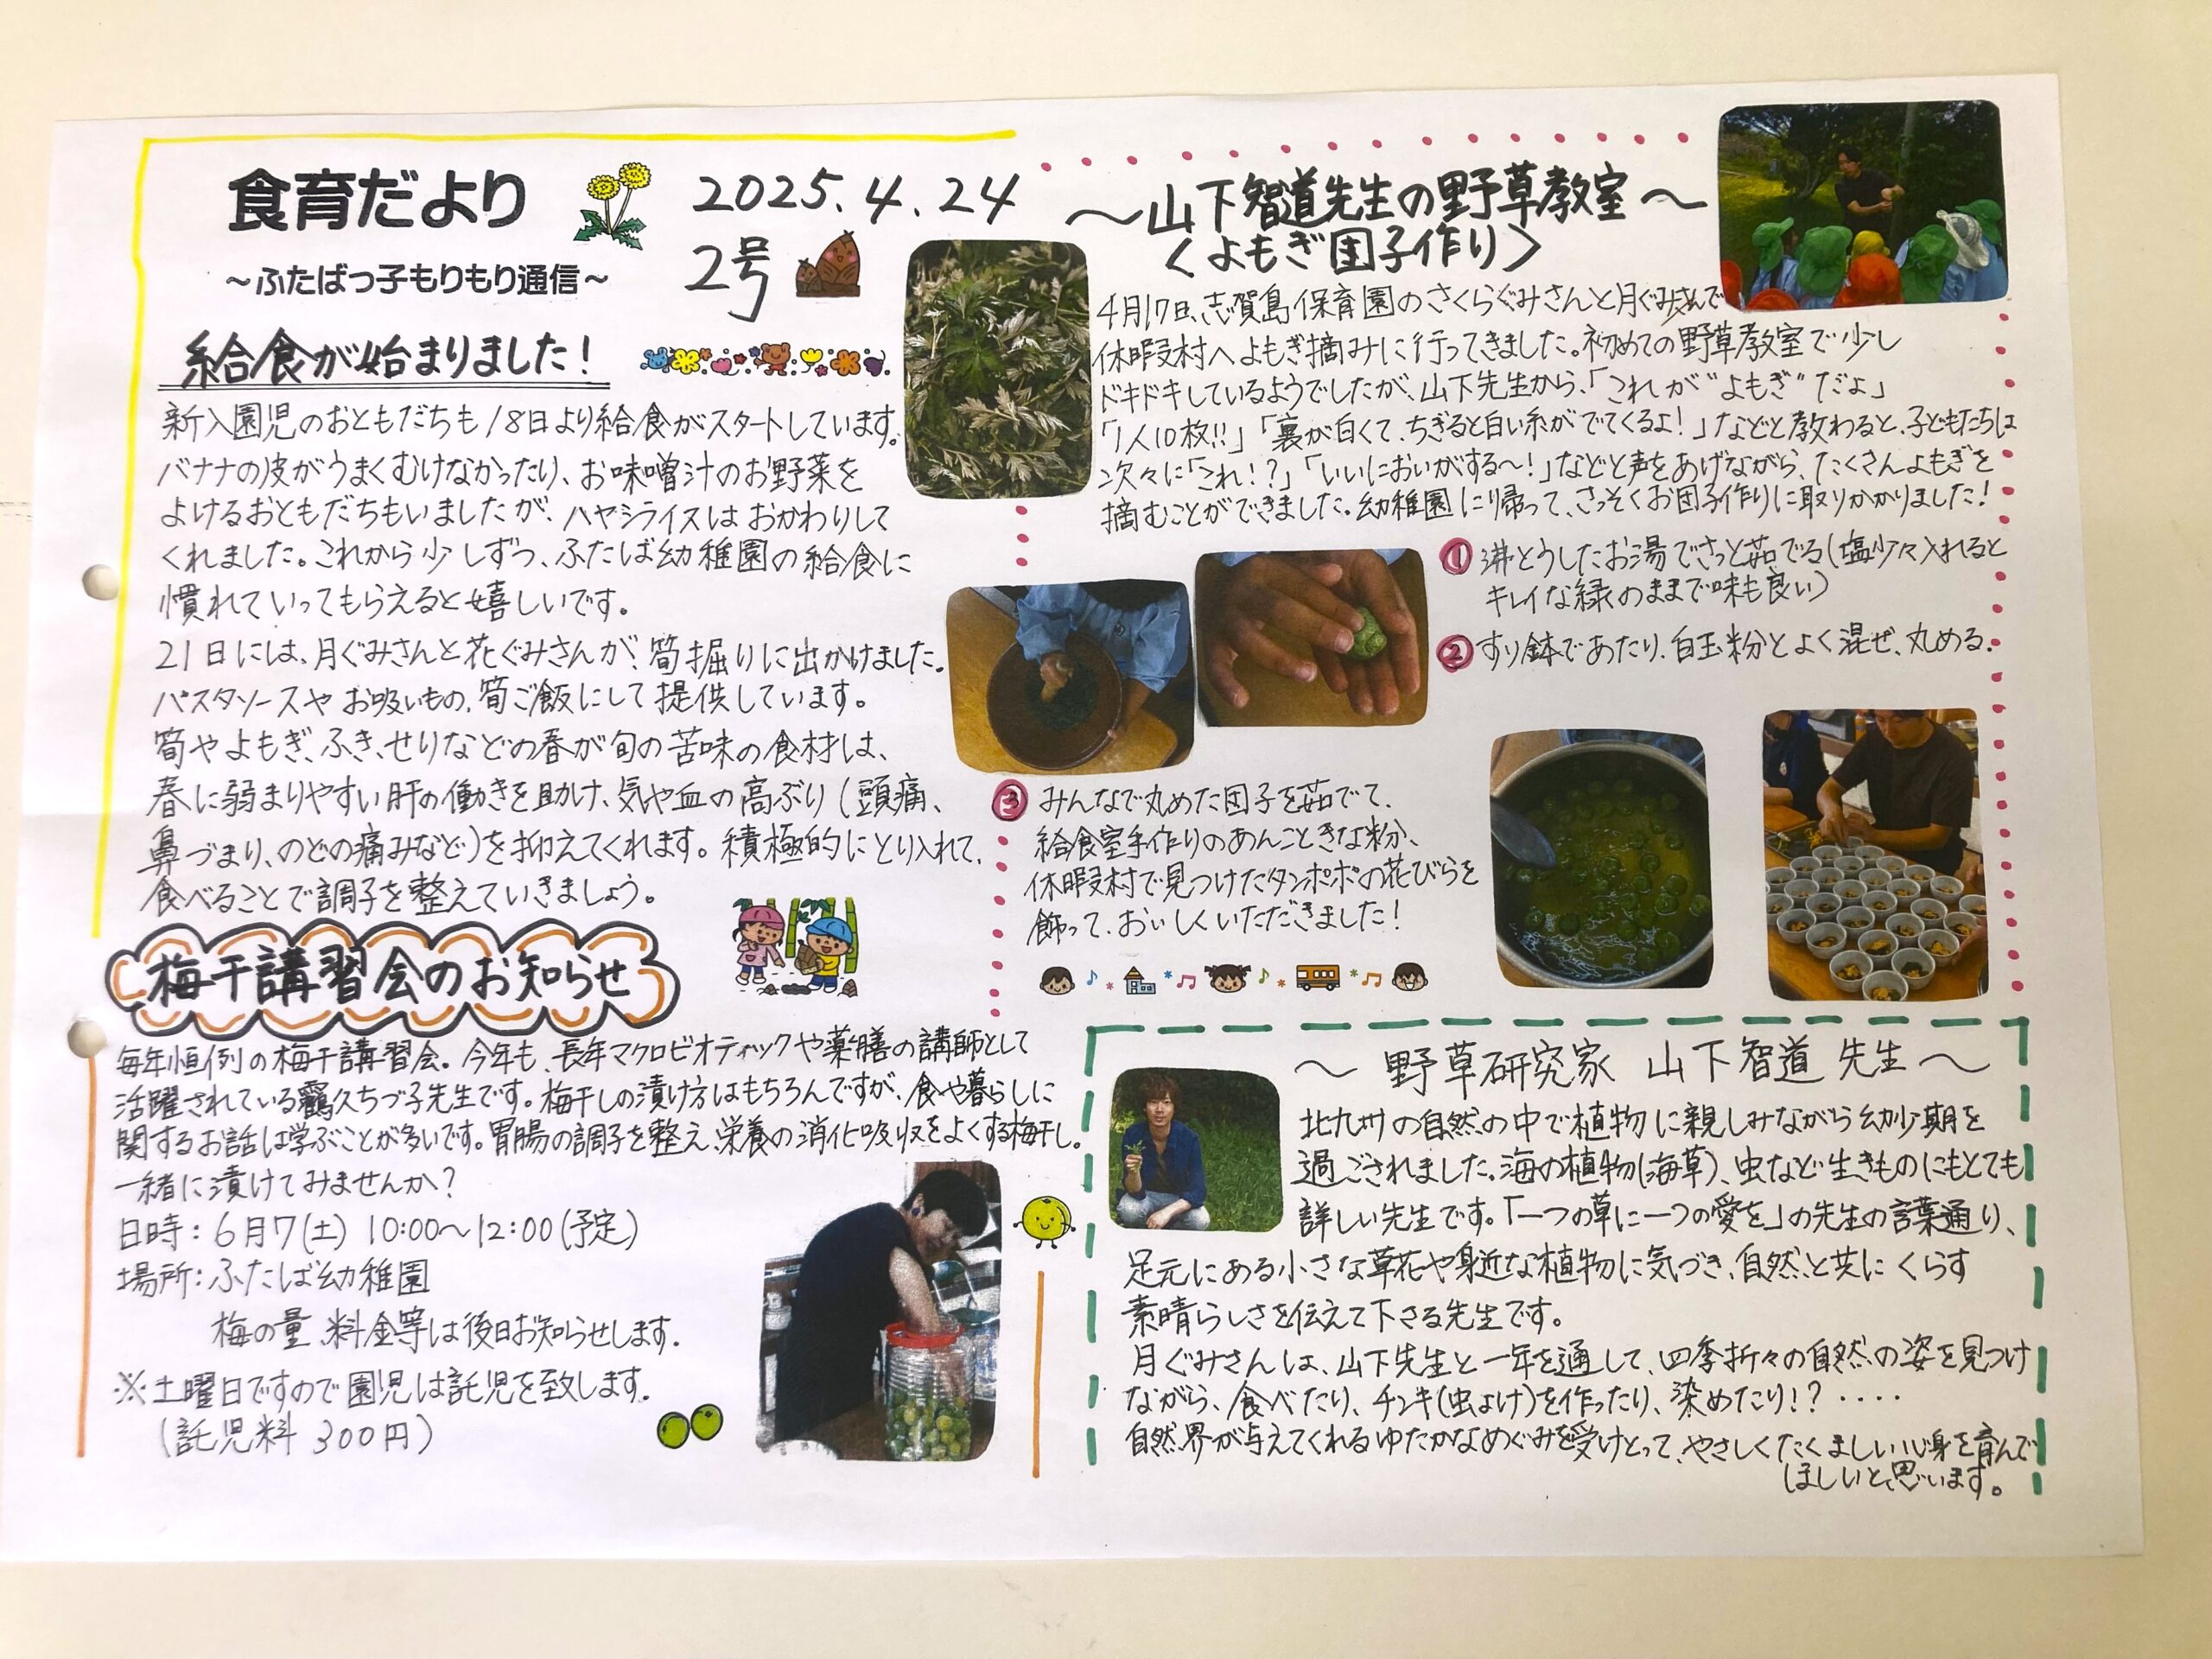 食育だより
～ふたばっ子もりもり通信～
2025.4.24
2号
給食が始まりました！
新入園児のおともだちも18日より給食がスタートしています。
バナナの皮がうまくむけなかったり、お味噌汁のお野菜を
よけるおともだちもいましたが、ハヤシライスはおかわりして
くれました。これから少しずつ、ふたば幼稚園の給食に
慣れていってもらえると嬉しいです。
21日には、月ぐみさんと花ぐみさんが、筍掘りに出かけました。
パスタソースやお吸いもの、筍ご飯にして提供しています。
筍やよもぎ、ふき、せりなどの春が旬の苦味の食材は、
春に弱まりやすい肝の働きを助け、気や血の高ぶり（頭痛、
鼻づまり、のどの痛みなど）を抑えてくれます。積極的にとり入れて、
食べることで調子を整えていきましょう。
梅干講習会のお知らせ
毎年恒例の梅干講習会。今年も、長年マクロビオティックや薬膳の講師として
活躍されている鸖久ちづ子先生です。梅干しの漬け方はもちろんですが、食や暮らしに
関するお話は学ぶことが多いです。胃腸の調子を整え、栄養の消化吸収をよくする梅干し。
一緒に漬けてみませんか？
日時：6月7(土) 10:00～12:00(予定)
場所：ふたば幼稚園
梅の量、料金等は後日お知らせします。
※土曜日ですので園児は託児を致します。
（託児料 300円）
～山下智道先生の野草教室～
〈よもぎ団子作り〉
4月17日、志賀島保育園のさくらぐみさんと月ぐみさんで
休暇村へよもぎ摘みに行ってきました。初めての野草教室で少し
ドキドキしているようでしたが、山下先生から、「これが"よもぎ"だよ」
「1人10枚!!」「裏が白くて、ちぎると白い糸がでてくるよ！」などと教わると、子どもたちは
次々に「これ！？」「いいにおいがする～！」などと声をあげながら、たくさんよもぎを
摘むことができました。幼稚園に帰って、さっそくお団子作りに取りかかりました！
① 沸とうしたお湯でさっと茹でる（塩少々入れると
キレイな緑のままで味も良い）
② すり鉢であたり、白玉粉とよく混ぜ、丸める。
③ みんなで丸めた団子を茹でて、
給食室手作りのあんこときな粉、
休暇村で見つけたタンポポの花びらを
飾って、おいしくいただきました！
～ 野草研究家 山下智道 先生～
北九州の自然の中で植物に親しみながら幼少期を
過ごされました。海の植物(海草)、虫など生きものにもとても
詳しい先生です。「一つの草に一つの愛を」の先生の言葉通り、
足元にある小さな草花や身近な植物に気づき、自然と共にくらす
素晴らしさを伝えて下さる先生です。
月ぐみさんは、山下先生と一年を通して、四季折々の自然の姿を見つけ
ながら、食べたり、チンキ(虫よけ)を作ったり、染めたり！？・・・・
自然界が与えてくれるゆたかなめぐみを受けとって、やさしくたくましい心身を育んで
ほしいと思います。